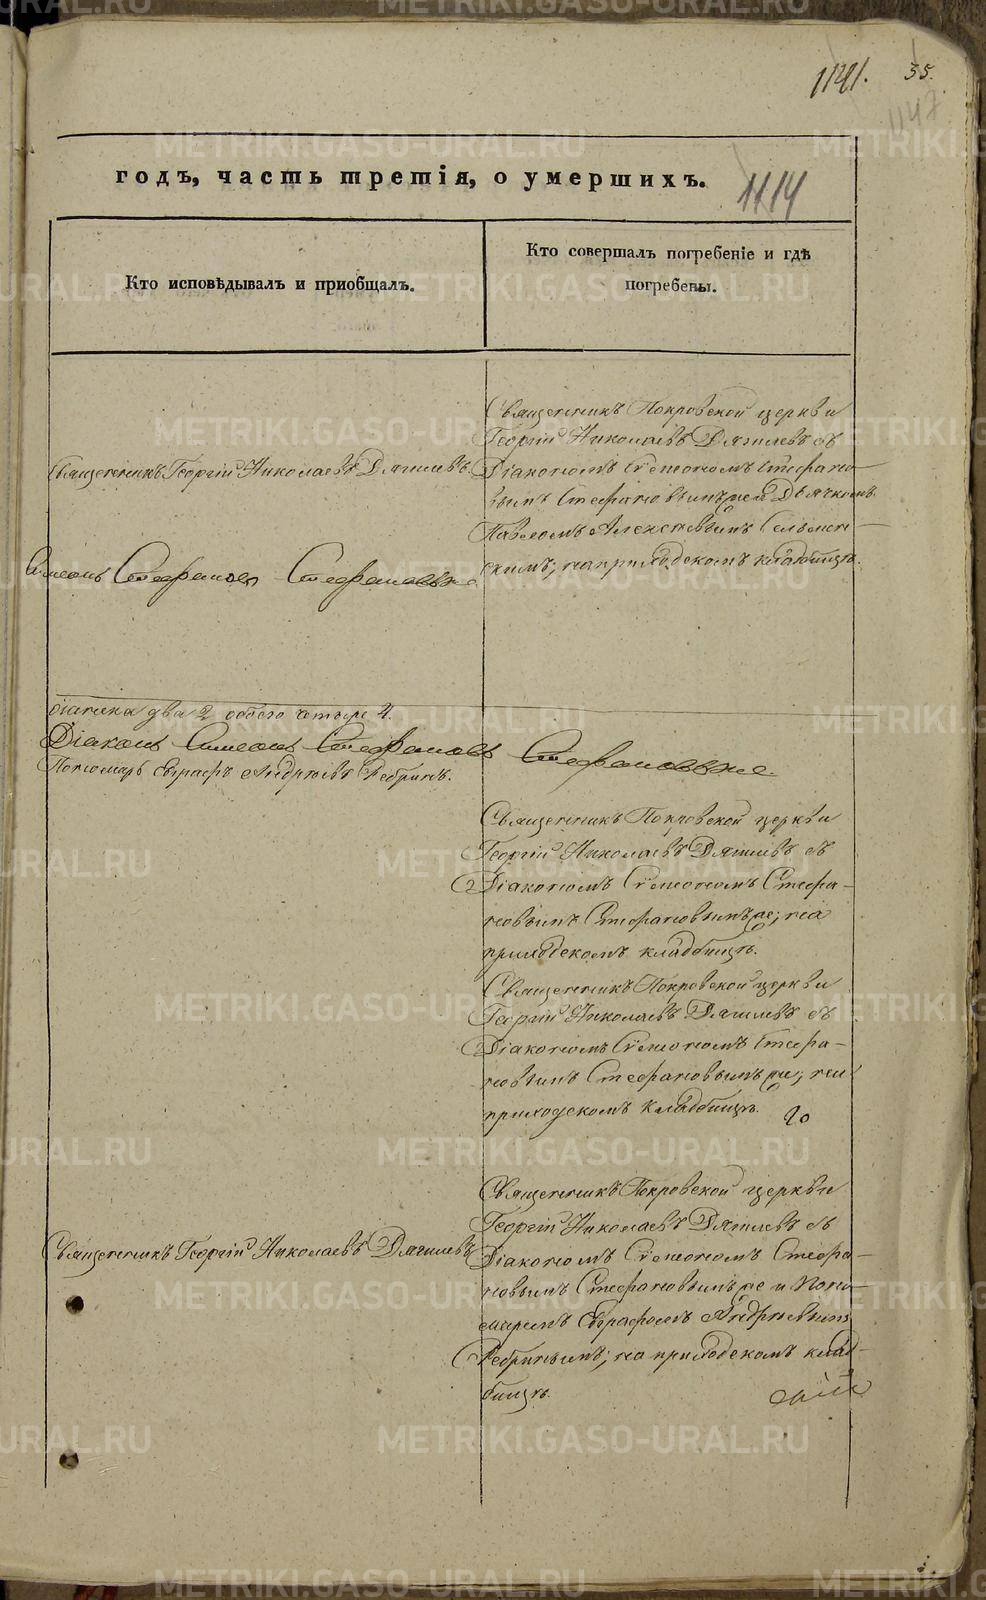 1141.
35.
1147
годъ, часть третія, о умершихъ.
1114
Кто исповѣдывалъ и приобщалъ.
Кто совершалъ погребеніе и гдѣ
погребены.
Священникъ Георгій Николаевъ Дягилевъ
Священникъ Покровской церкви
Георгій Николаевъ Дягилевъ съ
Діакономъ Сѵмеономъ Стефано-
вымъ Стефановымъ же и Дьячкомъ
Павломъ Алексѣевымъ
скимъ; на приходскомъ кладбищѣ.
Симеонъ Стефановъ Стефановъ же
два 2 обоего четыре 4.
Діаконъ Симеонъ Стефановъ Стефановъ же
Пономарь Евграфъ Андреевъ Ребринъ.
Священникъ Покровской церкви
Георгій Николаевъ Дягилевъ съ
Діакономъ Сѵмеономъ Стефа-
новымъ Стефановымъ же; на
приходскомъ кладбищѣ.
Священникъ Покровской церкви
Георгій Николаевъ Дягилевъ съ
Діакономъ Сѵмеономъ Стефа-
новымъ Стефановымъ же; на
приходскомъ кладбищѣ.
Священникъ Георгій Николаевъ Дягилевъ
Священникъ Покровской церкви
Георгій Николаевъ Дягилевъ съ
Діакономъ Сѵмеономъ Стефа-
новымъ Стефановымъ же и Поно-
маремъ Евграфомъ Андреевымъ
Ребринымъ; на приходскомъ клад-
бищѣ.
METRIKI.GASO-URAL.RU